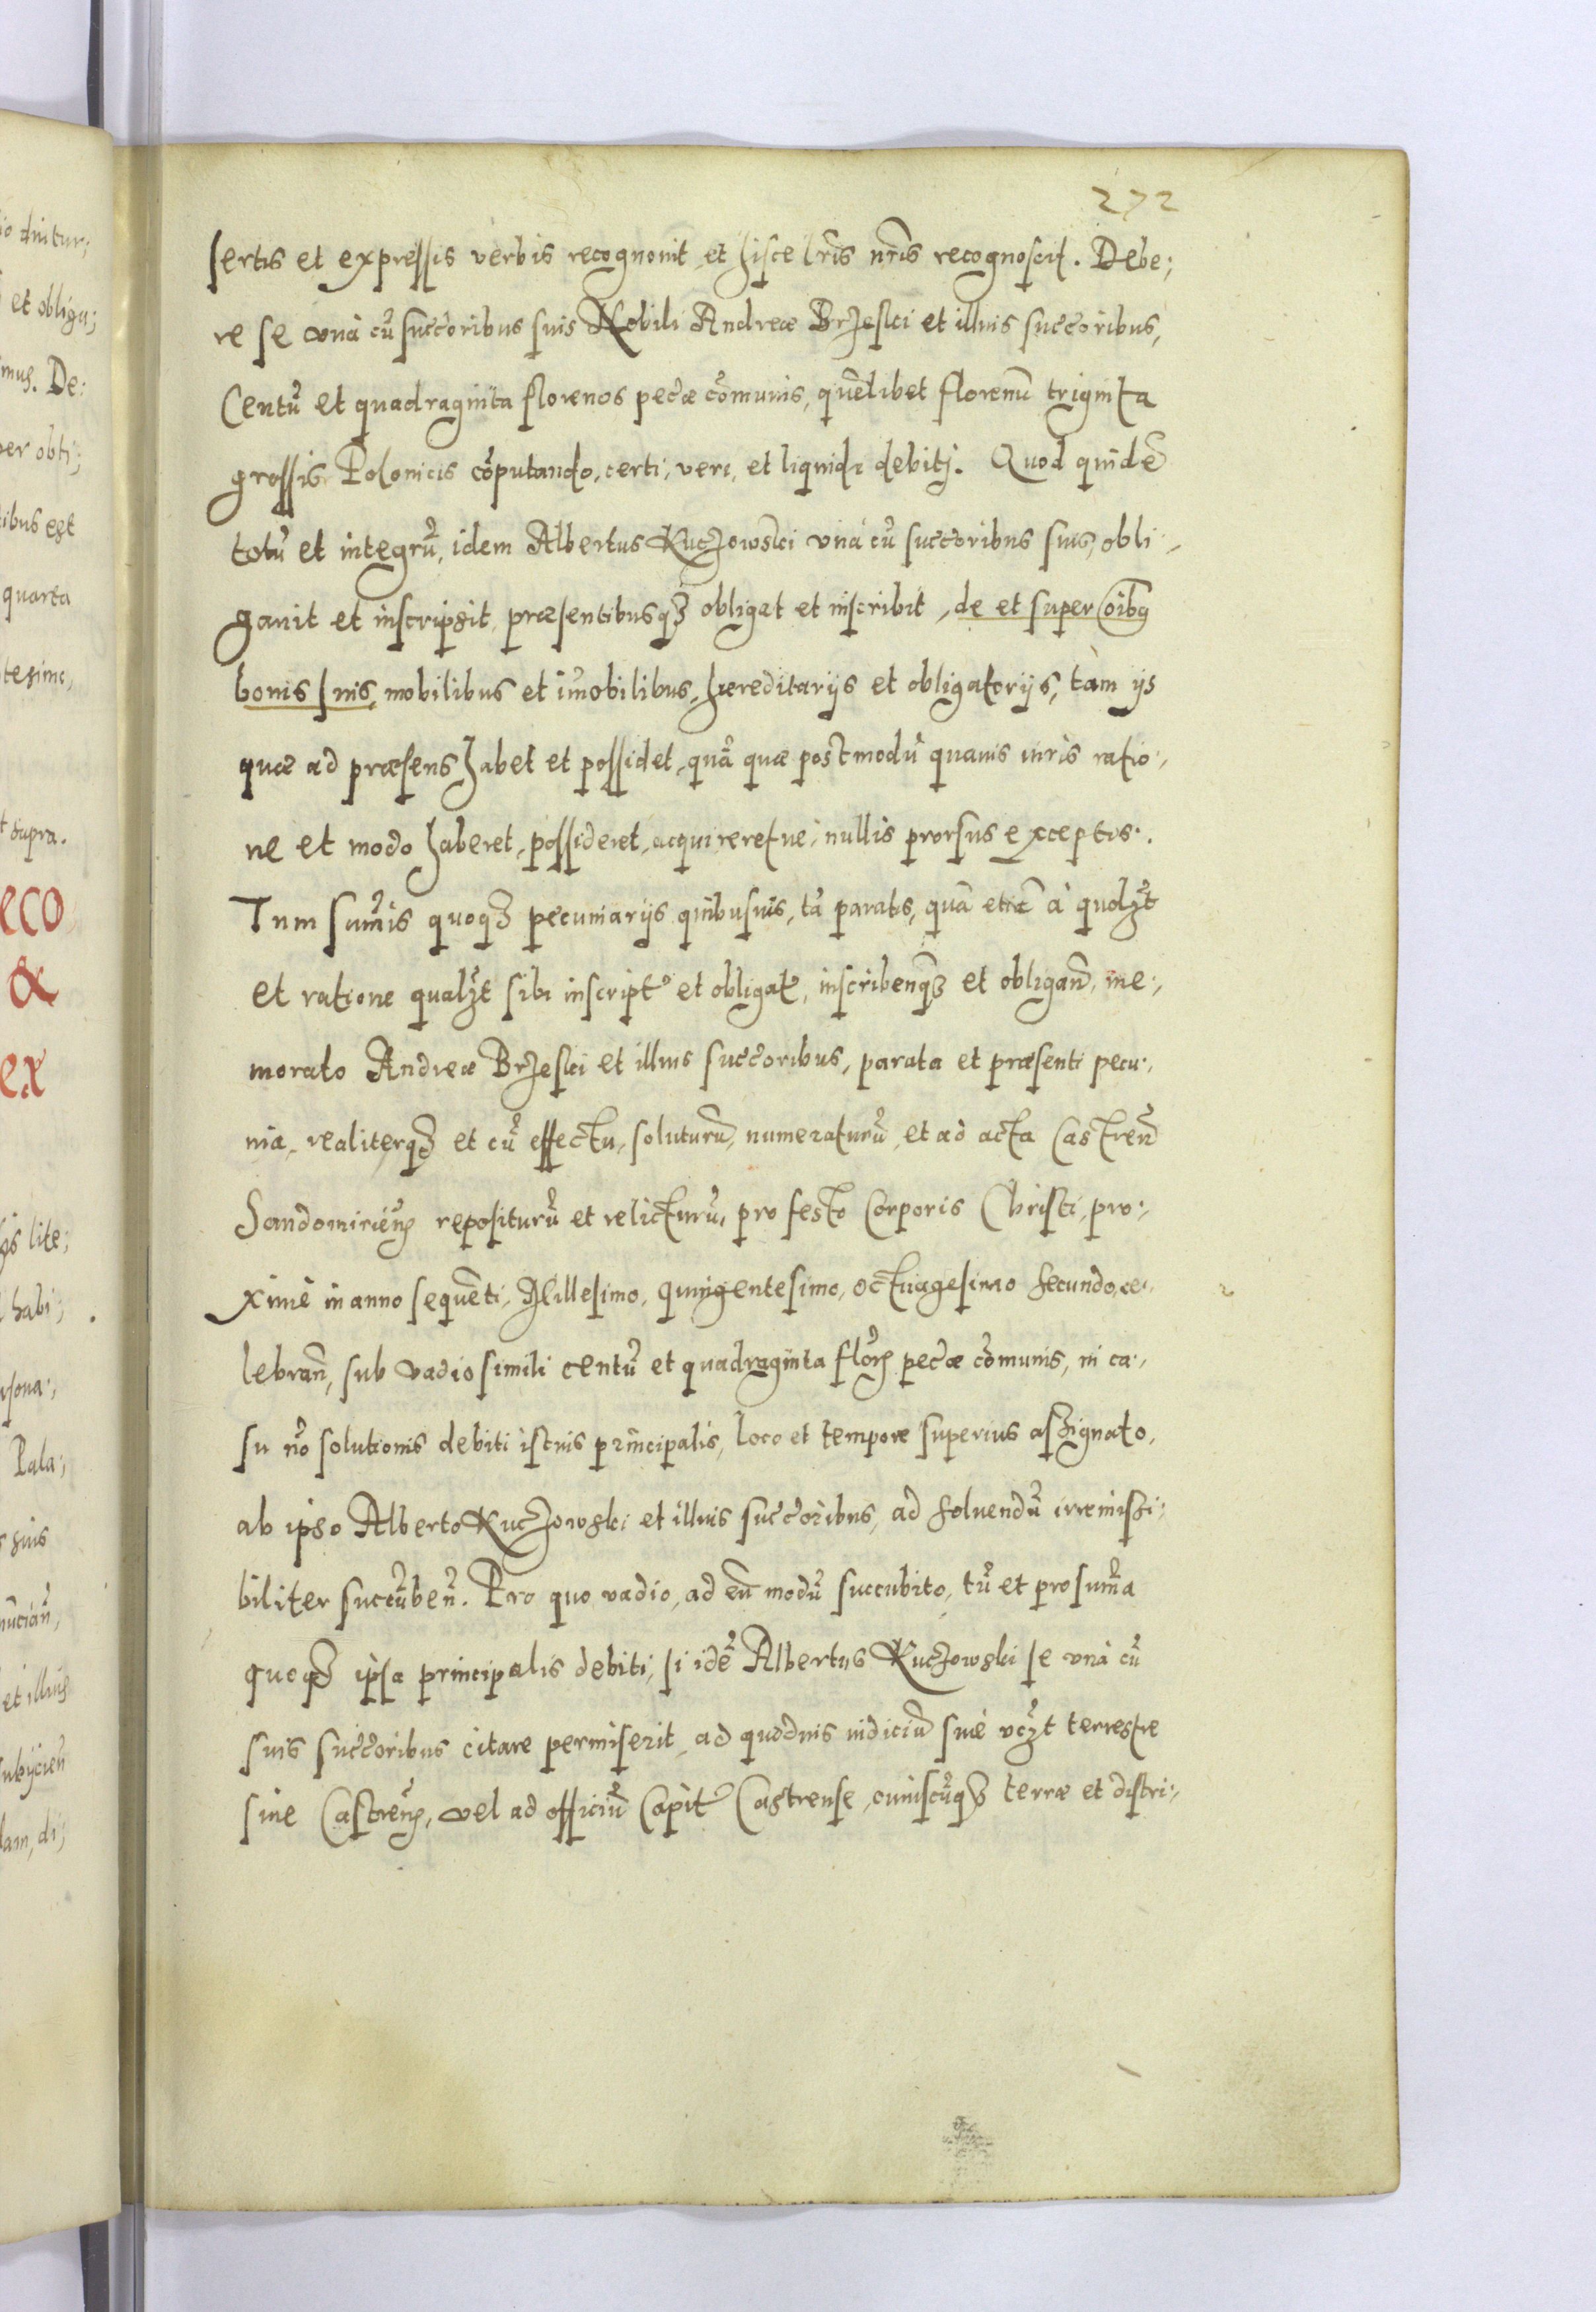 272
sertis et expressis verbis recognouit et hisce lr̃is nr̃is recognoscit. Debe;
re se vnà cũ succoribus suis Nobili Andreæ Brzeski et illius succoribus,
Centũ et quadraginta florenos pecæ cõmunis, quẽlibet florenũ triginta
grossis Polonicis cõputando, certi, veri, et liquidi debitj. Quod quidẽ
totũ et integrũ, idem Albertus Kuczowski vnà cũ succoribus suis, obli-
gauit et inscripsit, præsentibusq3 obligat et inscribit, de et super oĩbq
bonis suis, mobilibus et im̃obilibus, hæreditarijs et obligatorijs, tàm ijs
quæ ad præsens habet et possidet, quã quæ postmodũ quauis iuris ratio-
ne et modo haberet, possideret, acquireretue, nullis prorsus exceptis.
Tum sum̃is quoq3 pecuniarijs quibusuis, tã paratis, quã etiã à quolzt
et ratione qualzt sibi inscript̃ et obligat̃, inscribenq3 et obligañ, me-
morato Andreæ Brzeski et illius succoribus, parata et præsenti pecu-
nia, realiterq3 et cũ effectu, soluturũ, numeraturũ, et ad acta Castreñ
Sandomirieñs repositurũ et relicturũ, pro festo Corporis Christi, pro-
ximè in anno sequẽti, Millesimo, quingentesimo, octuagesimo secundo, ce-
lebrañ, sub vadio simili centũ et quadraginta flor̃ pecæ cõmunis, in ca-
su nõ solutionis debiti istius principalis, loco et tempore superius assignato,
ab ipso Alberto Kuczowski et illius succoribus, ad soluendũ irremissi-
biliter succũbeñ. Pro quo vadio, ad eũ modũ succubito, tũ et pro sum̃a
quoq3 ipsa principalis debiti, si idẽ Albertus Kuczowski se vnà cũ
suis succoribus citare permiserit, ad quoduis iudiciũ siuè vczt terrestre
siue Castreñs, vel ad officiũ Capit̃ Castrense, cuiuscũq3 terræ et distri-